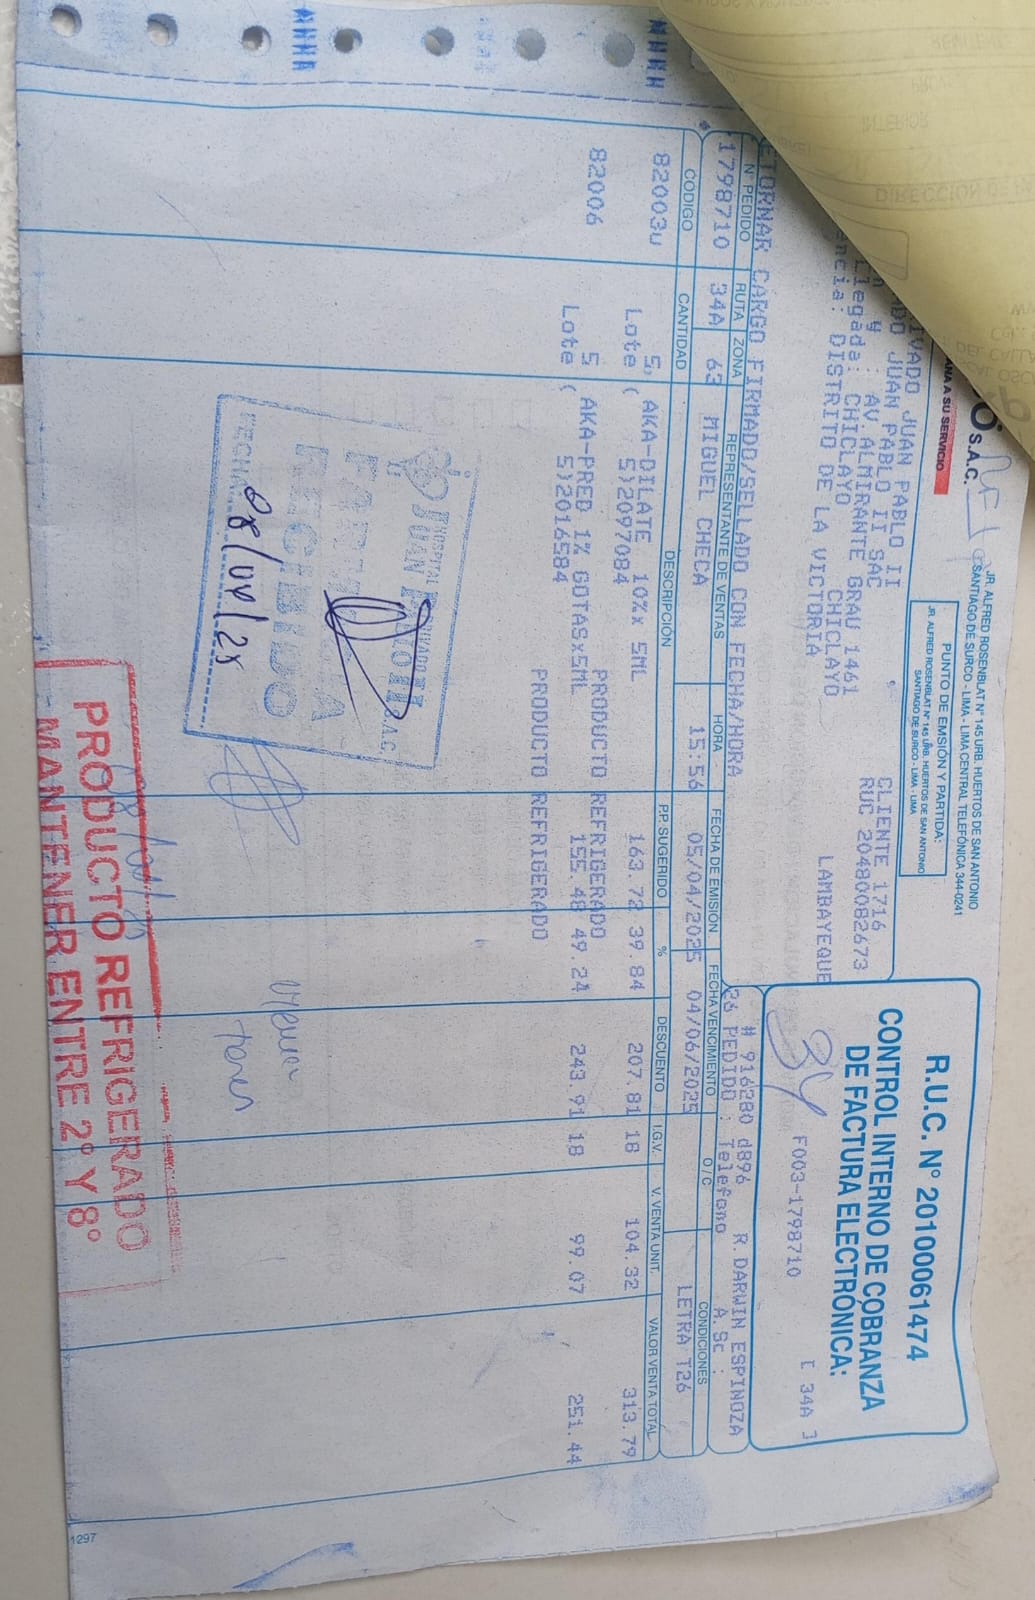 S.A.C.
ANA A SU SERVICIO
JR. ALFRED ROSENBLAT N° 145 URB. HUERTOS DE SAN ANTONIO
SANTIAGO DE SURCO - LIMA - LIMA CENTRAL TELEFÓNICA 344-0241
PUNTO DE EMSIÓN Y PARTIDA:
JR. ALFRED ROSENBLAT N° 145 URB. HUERTOS DE SAN ANTONIO
SANTIAGO DE SURCO - LIMA - LIMA
R.U.C. N° 20100061474
CONTROL INTERNO DE COBRANZA
DE FACTURA ELECTRÓNICA:
F003-1798710 [ 34A ]
34
IVADO JUAN PABLO II CLIENTE 1716
DO JUAN PABLO II SAC RUC 20480082673
y : AV.ALMIRANTE GRAU 1461
llegada: CHICLAYO CHICLAYO LAMBAYEQUE
encia: DISTRITO DE LA VICTORIA
# 916280 d896 R. DARWIN ESPINOZA
ETORNAR CARGO FIRMADO/SELLADO CON FECHA/HORA 26 PEDIDO : Telefono A.Sc :
N° PEDIDO RUTA ZONA REPRESENTANTE DE VENTAS HORA FECHA DE EMISIÓN FECHA VENCIMIENTO O / C CONDICIONES
1798710 34A 63 MIGUEL CHECA 15:56 05/04/2025 04/06/2025 LETRA T26
CÓDIGO CANTIDAD DESCRIPCIÓN P.P. SUGERIDO % DESCUENTO I.G.V. V. VENTA UNIT. VALOR VENTA TOTAL
82003u 5 AKA-DILATE 10%x 5ML 163.72 39.84 207.81 18 104.32 313.79
Lote ( 5)2097084 PRODUCTO REFRIGERADO
82006 5 AKA-PRED 1% GOTASx5ML 155.48 49.24 243.91 18 99.07 251.44
Lote ( 5)2016584 PRODUCTO REFRIGERADO
HOSPITAL PRIVADO
JUAN PABLO II S.A.C.
FARMACIA
RECIBIDO
FECHA: 08/04/25
PRODUCTO REFRIGERADO
MANTENER ENTRE 2° Y 8°
1297